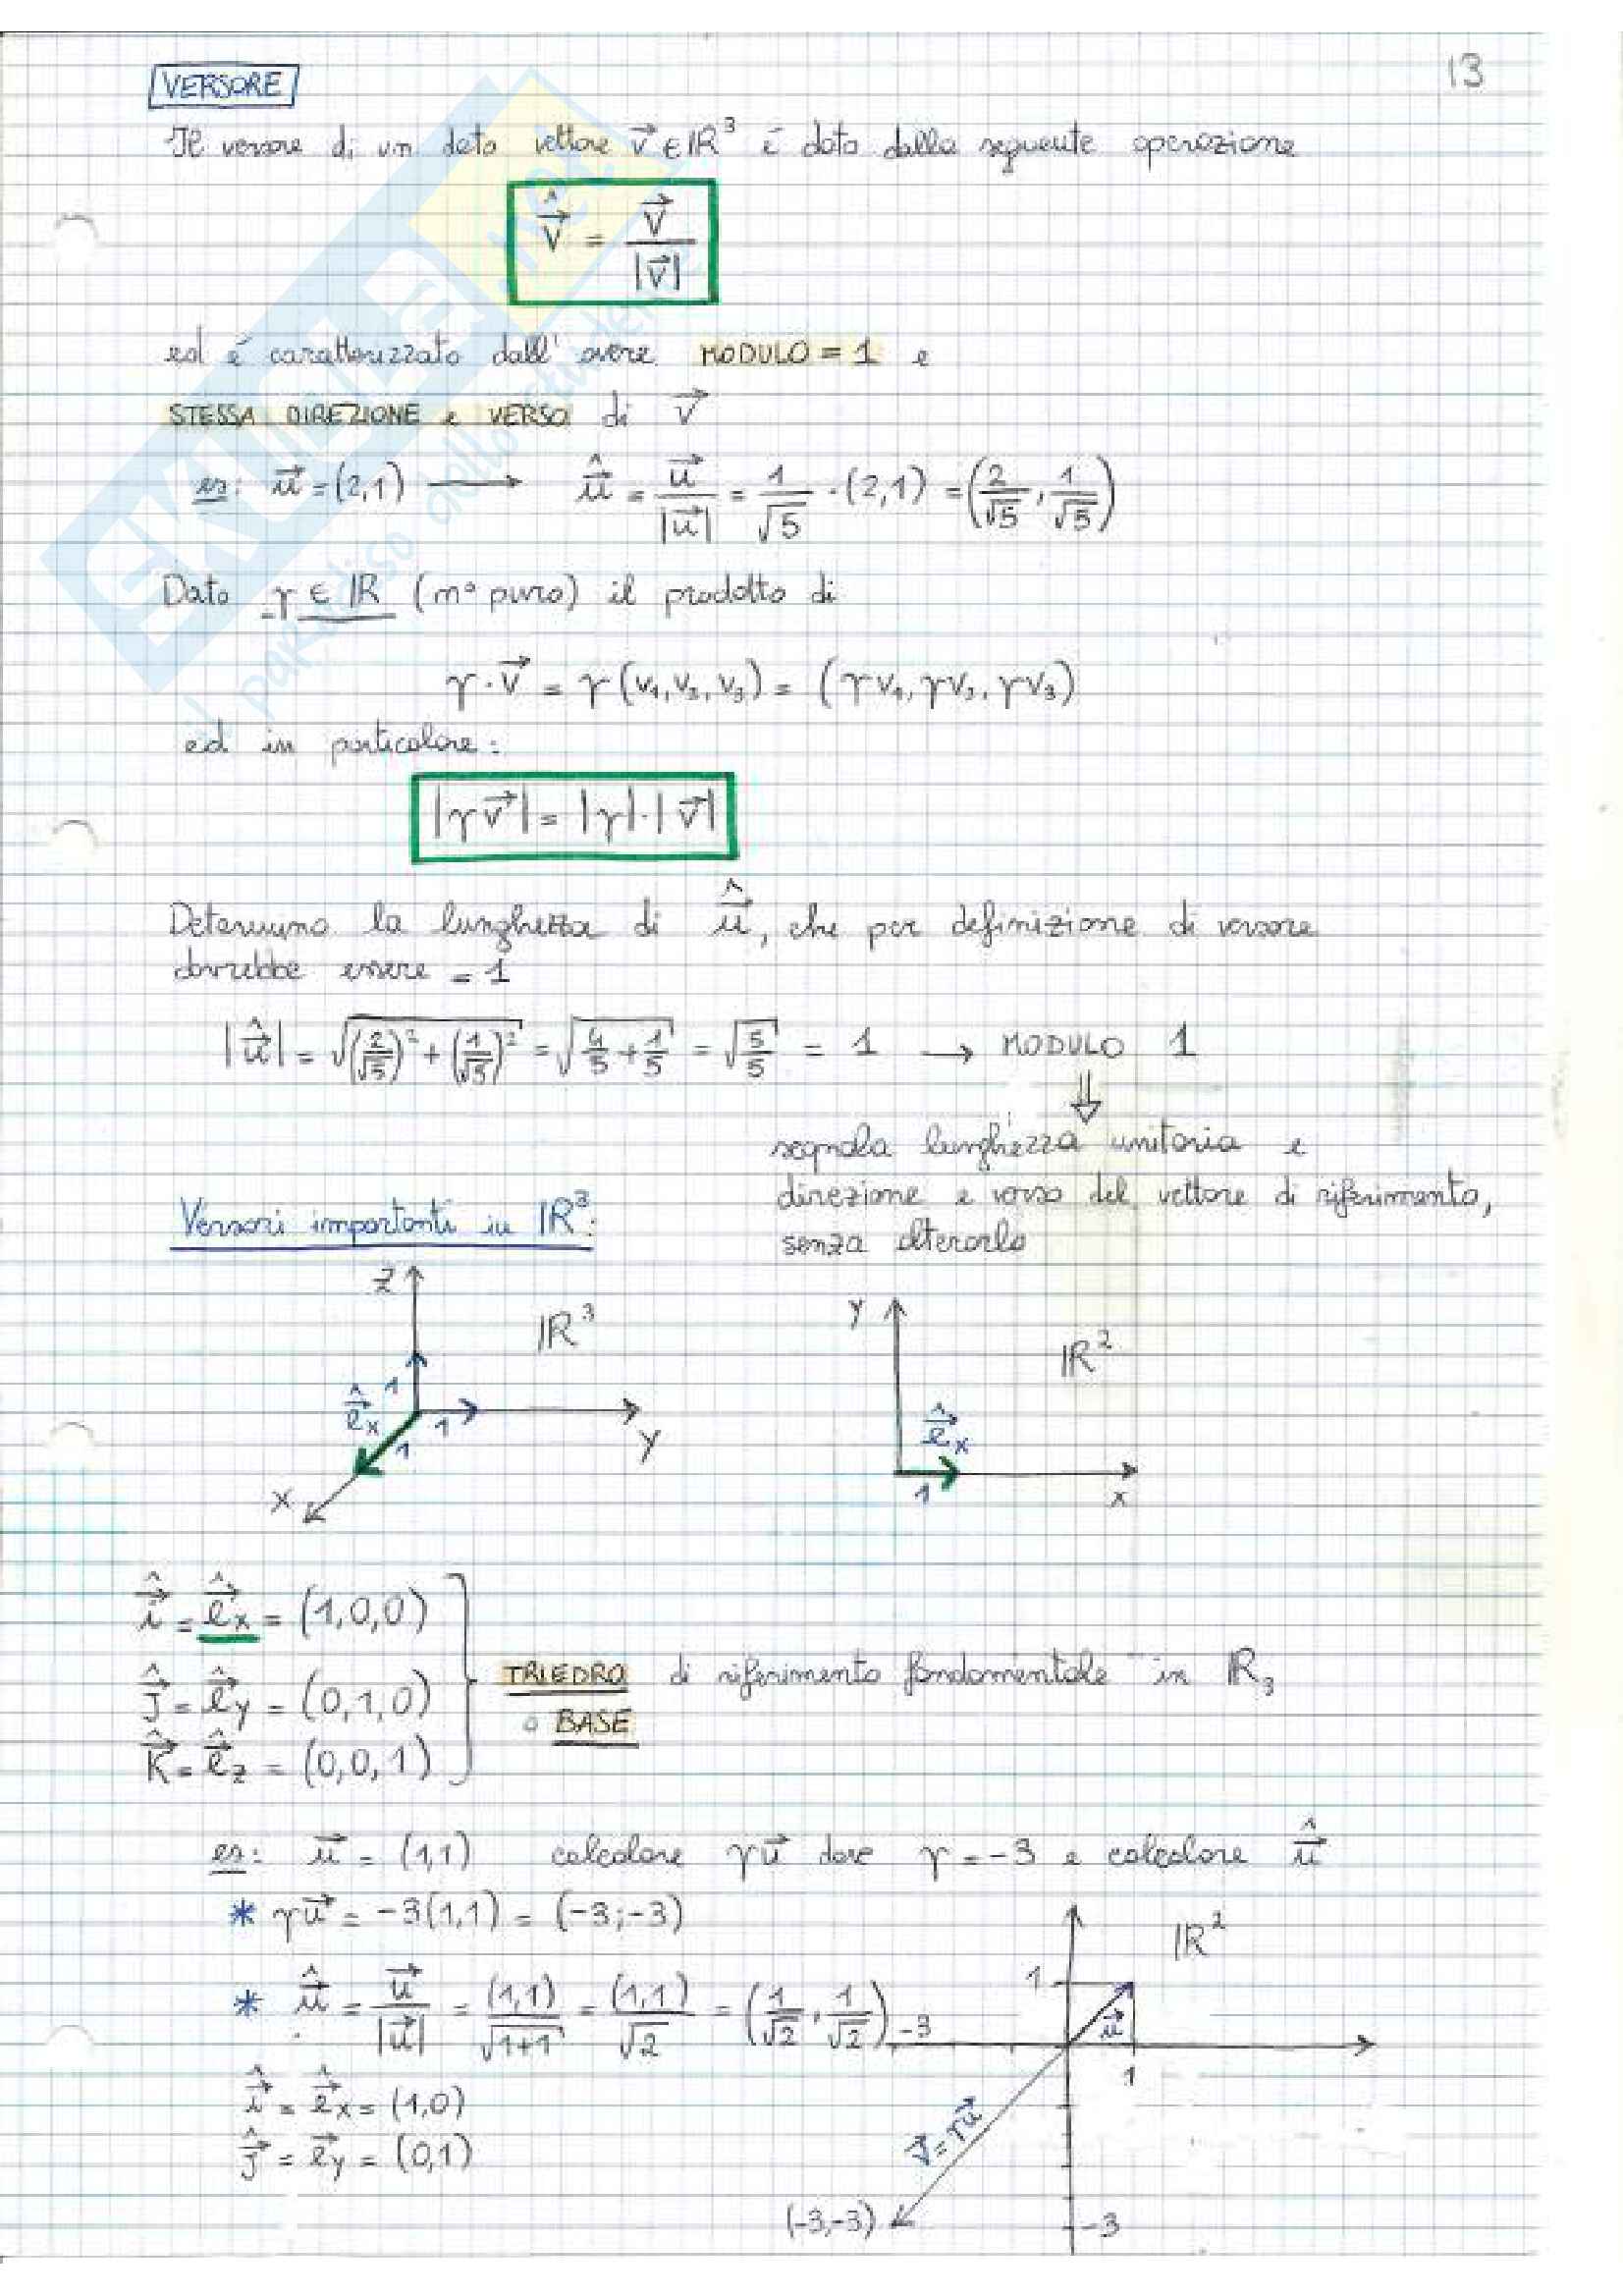 13
VERSORE
Il versore di un dato vettore v⃗ ∈ ℝ³ é dato dalla seguente operazione
v⃗̂ = v⃗ / |v⃗|
ed é caratterizzato dall' avere MODULO = 1 e
STESSA DIREZIONE e VERSO di v⃗
es: u⃗ = (2,1) ⟶ u⃗̂ = u⃗/|u⃗| = 1/√5 · (2,1) = (2/√5, 1/√5)
Dato γ ∈ ℝ (n° puro) il prodotto di
γ · v⃗ = γ (v₁, v₂, v₃) = (γv₁, γv₂, γv₃)
ed in particolare:
|γv⃗| = |γ|·|v⃗|
Determino la lunghezza di u⃗̂, che per definizione di versore
dovrebbe essere = 1
|u⃗̂| = √((2/√5)² + (1/√5)²) = √(4/5 + 1/5) = √(5/5) = 1 → MODULO 1
⇓
segnala lunghezza unitaria e
direzione e verso del vettore di riferimento,
senza alterarlo
Versori importanti in ℝ³:
z ℝ³ 1 e⃗̂x 1 1 y x
y ℝ² e⃗̂x 1 x
i⃗̂ = e⃗̂x = (1,0,0)
j⃗̂ = e⃗̂y = (0,1,0)
k⃗̂ = e⃗̂z = (0,0,1)
TRIEDRO di riferimento fondamentale in ℝ₃
o BASE
es: u⃗ = (1,1) calcolare γu⃗ dove γ = -3 e calcolare u⃗̂
* γu⃗ = -3(1,1) = (-3;-3)
* u⃗̂ = u⃗/|u⃗| = (1,1)/√(1+1) = (1,1)/√2 = (1/√2, 1/√2)
i⃗̂ = e⃗̂x = (1,0)
j⃗̂ = e⃗y = (0,1)
ℝ²
1
-3 u⃗
1
v⃗ = γu⃗
(-3,-3) -3
SKUOLA.net
il paradiso dello studente